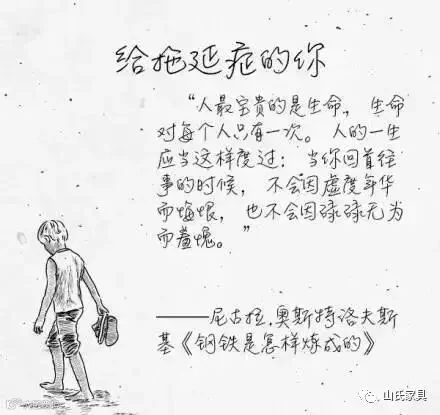 给拖延症的你
“人最宝贵的是生命，生命
对每个人只有一次。人的一生
应当这样度过：当你回首往
事的时候，不会因虚度年华
而悔恨，也不会因碌碌无为
而羞愧。”
——尼古拉.奥斯特洛夫斯
基《钢铁是怎样炼成的》
山氏家具